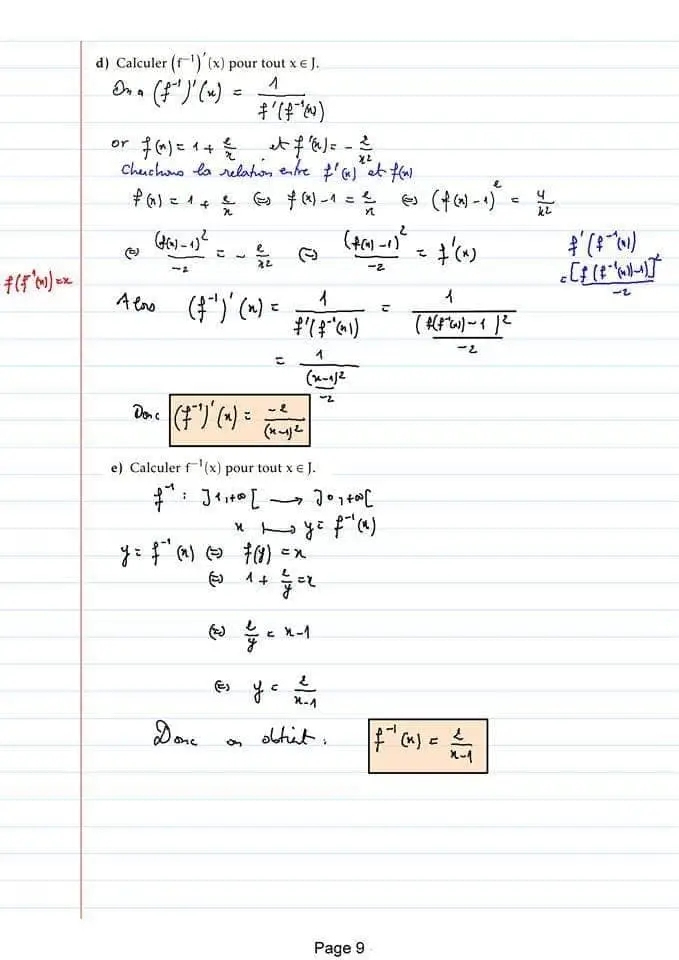 d) Calculer (f⁻¹)′(x) pour tout x ∈ J.
On a (f⁻¹)′(x) = 1 / f′(f⁻¹(x))
or f(x) = 1 + 2/x et f′(x) = - 2/x²
Cherchons la relation entre f′(x) et f(x)
f(x) = 1 + 2/x ⇔ f(x) - 1 = 2/x ⇔ (f(x) - 1)² = 4/x²
⇔ (f(x) - 1)² / -2 = - 2/x² ⇔ (f(x) - 1)² / -2 = f′(x)
f′(f⁻¹(x))
= [f(f⁻¹(x)) - 1]² / -2
f(f⁻¹(x)) = x
Alors (f⁻¹)′(x) = 1 / f′(f⁻¹(x)) = 1 / ((f(f⁻¹(x)) - 1)² / -2)
= 1 / ((x - 1)² / -2)
Donc (f⁻¹)′(x) = -2 / (x - 1)²
e) Calculer f⁻¹(x) pour tout x ∈ J.
f⁻¹ : ]1, +∞[ → ]0, +∞[
x ↦ y = f⁻¹(x)
y = f⁻¹(x) ⇔ f(y) = x
⇔ 1 + 2/y = x
⇔ 2/y = x - 1
⇔ y = 2 / x - 1
Donc on obtient : f⁻¹(x) = 2 / x - 1
Page 9